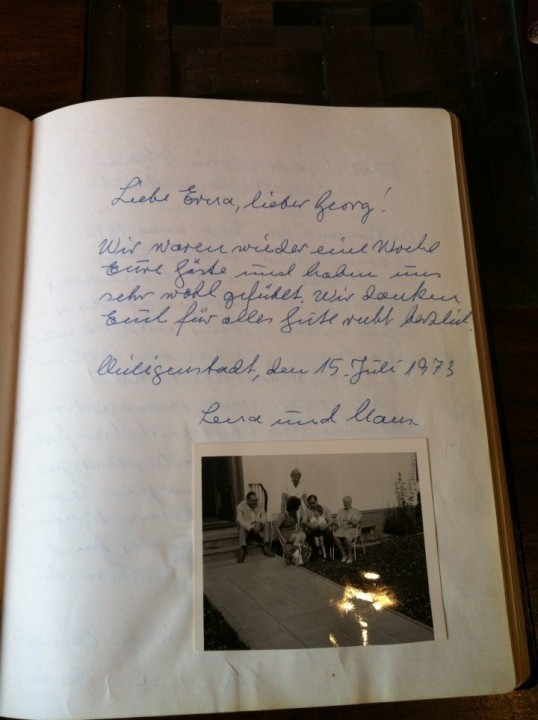 Liebe Erna, lieber Georg!
Wir waren wieder eine Woche
Eure Gäste und haben uns
sehr wohl gefühlt. Wir danken
Euch für alles Gute recht herzlich.
Heiligenstadt, den 15. Juli 1973
Lena und Klaus